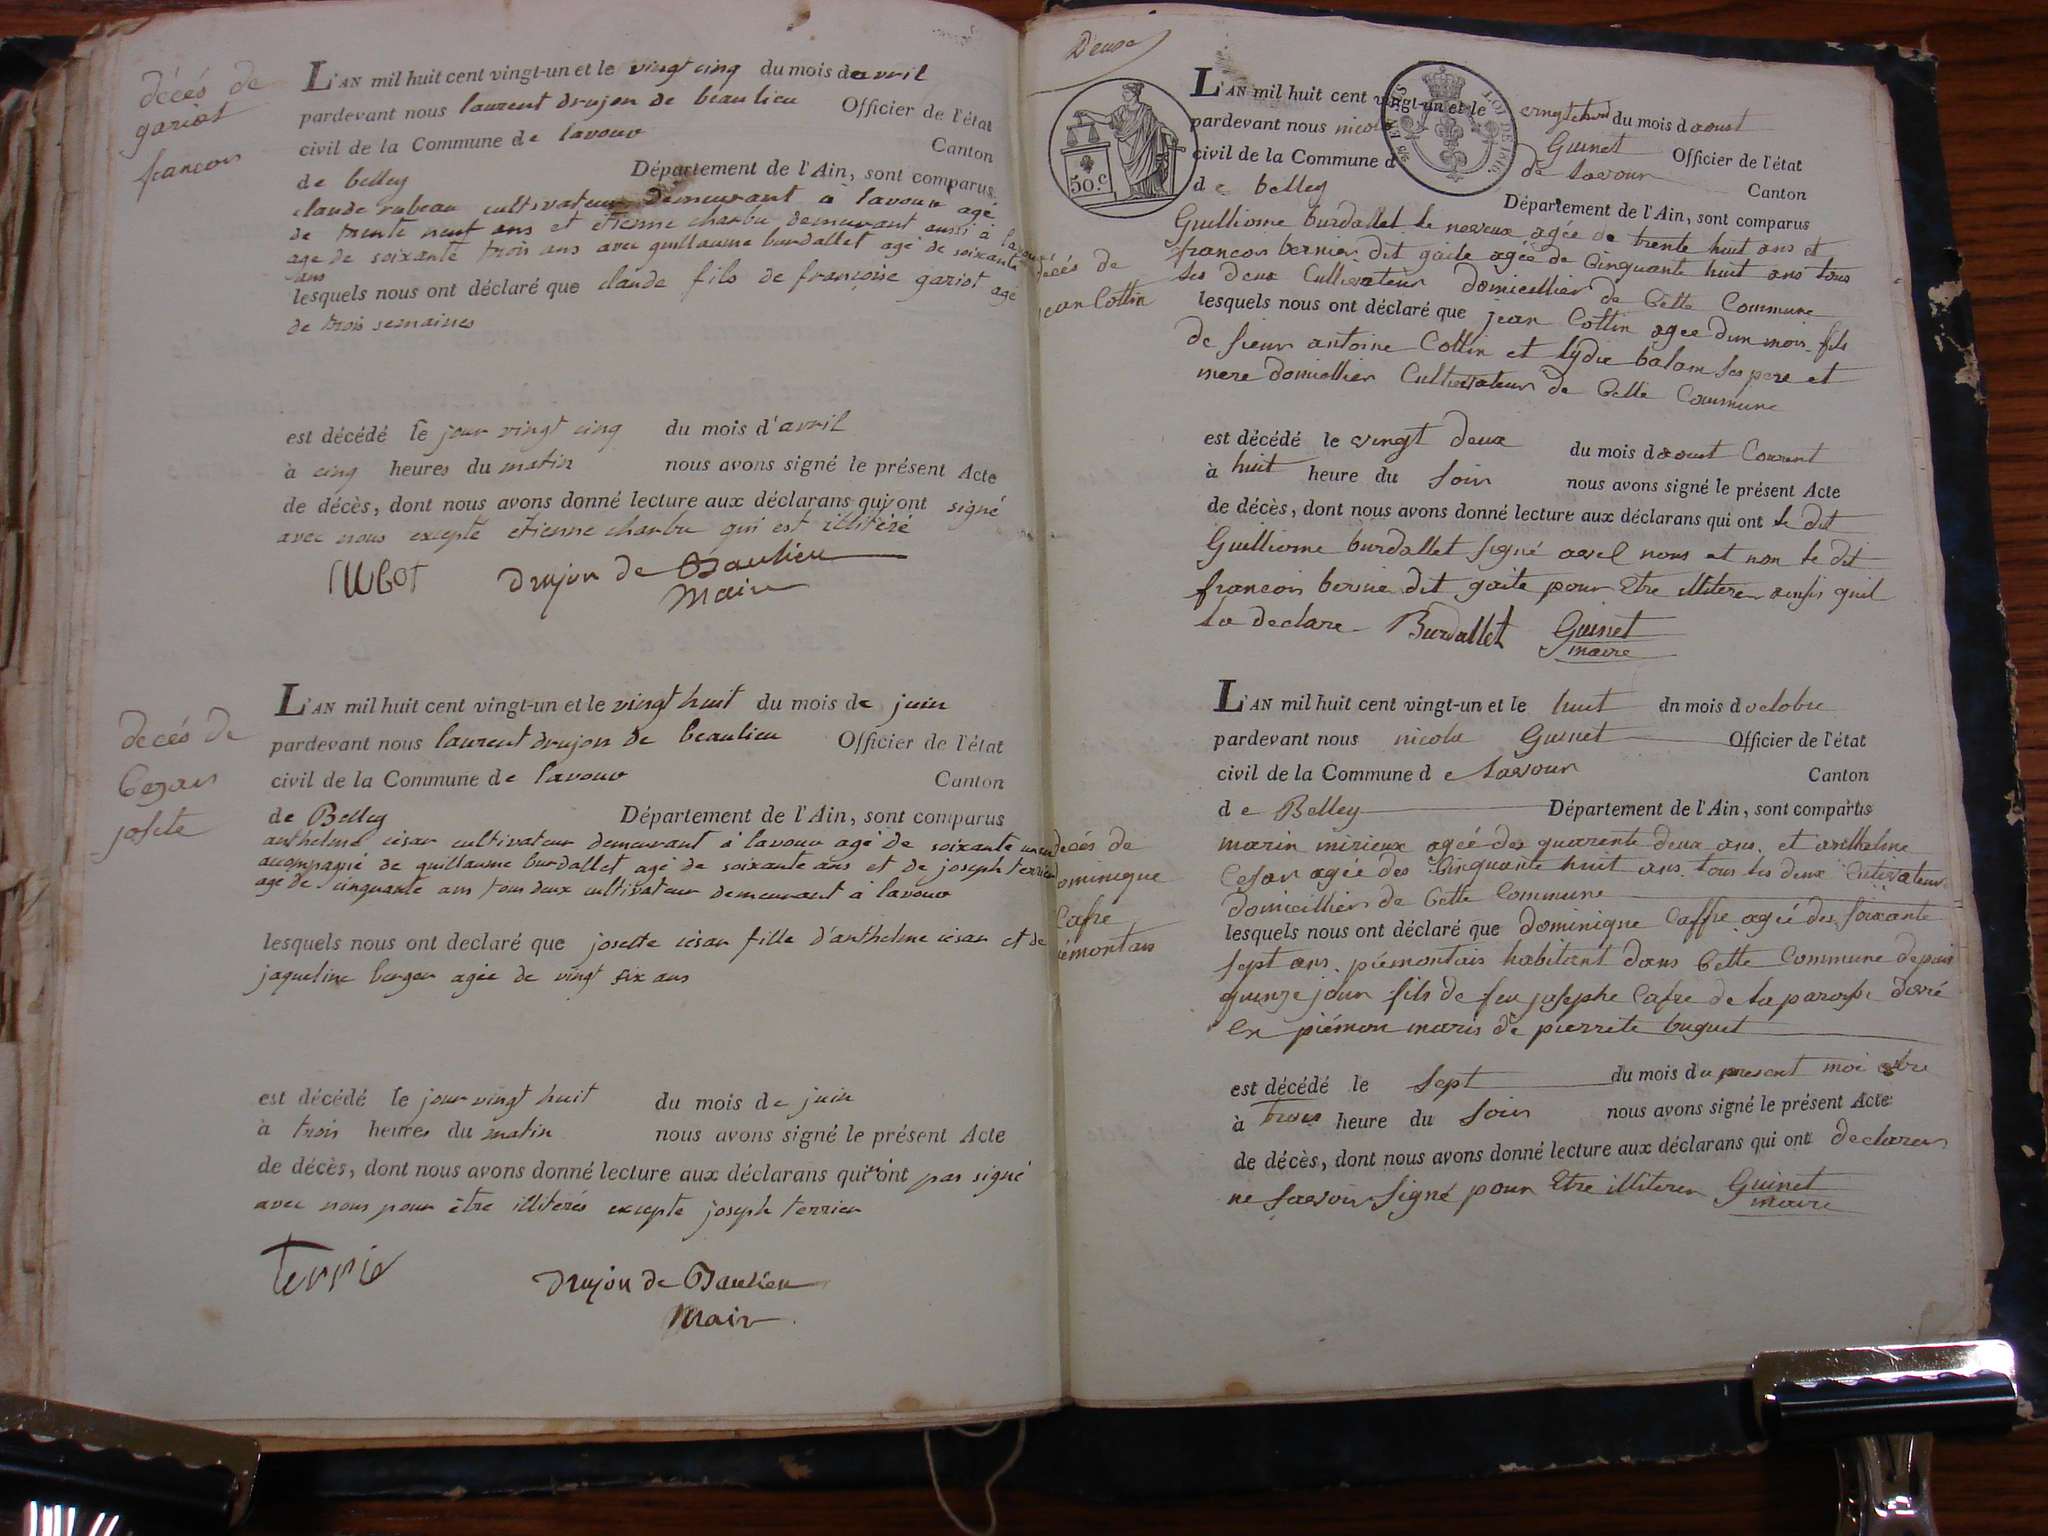 décés de
gariot
francois
L'AN mil huit cent vingt-un et le vingt cinq du mois davril
pardevant nous laurent drujon de beaulieu Officier de l'état
civil de la Commune de lavour Canton
de belley Département de l'Ain, sont comparus
claude rubeau cultivateur demeurant à lavour agé
de trente neuf ans et etienne charbu demeurant aussi à lavour
age de soixante trois ans avec guillaume burdallet agé de soixante
ans
lesquels nous ont déclaré que claude fils de françoise gariot agé
de trois semaines
est décédé le jour vingt cinq du mois d'avril
à cinq heures du matin nous avons signé le présent Acte
de décès, dont nous avons donné lecture aux déclarans qui ont signé
avec nous excepté etienne charbu qui est illitéré
drujon de Beaulieu
Maire
decés de
Cezar
josete
L'AN mil huit cent vingt-un et le vingt huit du mois de juin
pardevant nous laurent drujon de beaulieu Officier de l'état
civil de la Commune de lavour Canton
de Belley Département de l'Ain, sont comparus
anthelme césar cultivateur demeurant à lavour agé de soixante
accompagné de guillaume burdallet agé de soixante ans et de joseph terrier
agé de cinquante ans tous deux cultivateur demeurant à lavour
lesquels nous ont declaré que josette césar fille d'anthelme césar et de
jaqueline berger agée de vingt six ans
est décédé le jour vingt huit du mois de juin
à trois heures du matin nous avons signé le présent Acte
de décès, dont nous avons donné lecture aux déclarans qui n'ont pas signé
avec nous pour être illitérés excepte joseph terrier
Terrie
drujon de Baulieu
Mair
Deuse
50.c
LOI DE 1816
L'AN mil huit cent vingt-un et le vingt trois du mois daoust
pardevant nous nicolas Guinet Officier de l'état
civil de la Commune d de Lavour Canton
de belley Département de l'Ain, sont comparus
Guilliome burdallet le neveux agée de trente huit ans et
francois bernier dit gaite agée de Cinquante huit ans tous
les deux Cultivateur domicillier de Cette Commune
décés de
jean Cottin
lesquels nous ont déclaré que jean Cottin agee dun mois fils
de sieur antoine Cottin et lydie balam ses pere et
mere domicillier Cultivateur de Cette Commune
est décédé le vingt deux du mois daoust Courent
à huit heure du soir nous avons signé le présent Acte
de décès, dont nous avons donné lecture aux déclarans qui ont le dit
Guilliome burdallet signé avel nous et non le dit
francois bernie dit gaite pour Etre illiterer ainsis quil
la declare Burdallet Guinet
maire
L'AN mil huit cent vingt-un et le huit du mois doctobre
pardevant nous nicolas Guinet Officier de l'état
civil de la Commune de Lavour Canton
de Belley Département de l'Ain, sont comparus
decés de
dominique
Cafre
piémontais
marin mirieux agée des quarente deux ans. et anthelme
Cesar agée des Cinquante huit ans tous les deux Cultivateur
domicillier de Cette Commune
lesquels nous ont déclaré que dominique Caffre agée des soixante
sept ans. piémontais habitant dans Cette Commune depuis
quinze jour fils de feu josephe Cafre de la paroise
en piémon maris de pierrete buguet
est décédé le sept du mois du present moi
à trois heure du soir nous avons signé le présent Acte
de décès, dont nous avons donné lecture aux déclarans qui ont declarer
ne savoir signé pour Etre illiterer Guinet
maire